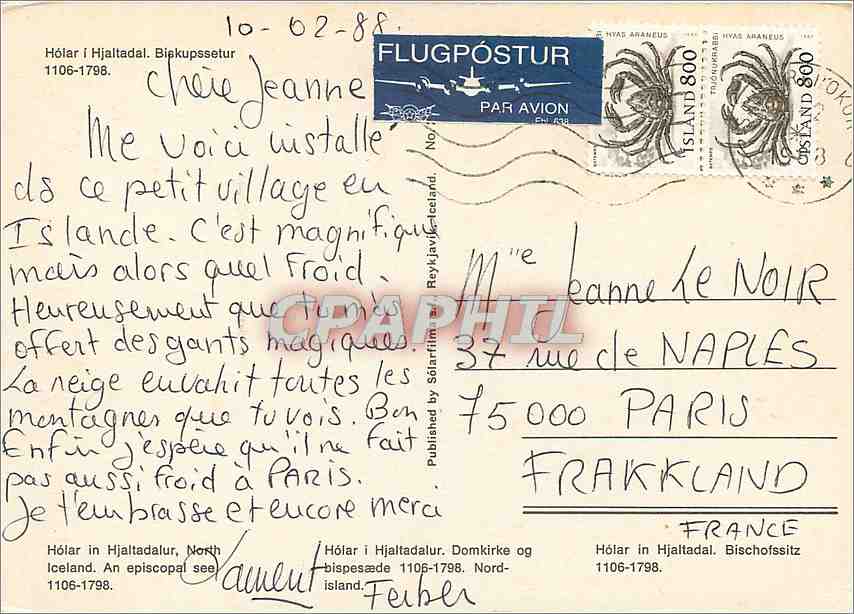 10-02-88.
Hólar i Hjaltadal. Biskupssetur
1106-1798.
FLUGPÓSTUR
PAR AVION
Ehl. 638
HYAS ARANEUS
ÍSLAND 800
HYAS ARANEUS
TRJÓNUKRABBI
ÍSLAND 800
Chère Jeanne
Me voici installé
ds ce petit village en
Islande. C'est magnifique
mais alors quel froid.
Heureusement que tu m'as
offert des gants magiques.
La neige envahit toutes les
montagnes que tu vois. Bon
Enfin j'espère qu'il ne fait
pas aussi froid à PARIS.
Je t'embrasse et encore merci
Ferber
Published by Sólarfilma sf. Reykjavik, Iceland. No.
Mlle Jeanne Le NOIR
37 rue de NAPLES
75000 PARIS
FRAKKLAND
FRANCE
CPAPHIL
Hólar in Hjaltadalur, North
Iceland. An episcopal see
1106-1798.
Hólar i Hjaltadalur. Domkirke og
bispesæde 1106-1798. Nord-
island.
Hólar in Hjaltadal. Bischofssitz
1106-1798.